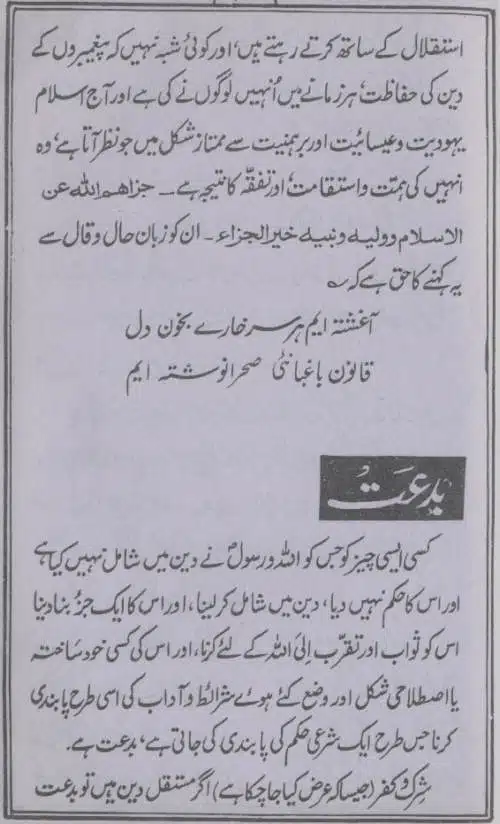 استقلال کے ساتھ کرتے رہتے ہیں، اور کوئی شبہ نہیں کہ پیغمبروں کے
دین کی حفاظت، ہر زمانے میں اُنہیں لوگوں نے کی ہے اور آج اسلام
یہودیت و عیسائیت اور برہمنیت سے ممتاز شکل میں جو نظر آتا ہے، وہ
انہیں کی ہمّت و استقامت، اور تفقّہ کا نتیجہ ہے ۔ جزاهم الله عن
الاسلام ووليه ونبيه خير الجزاء ۔ ان کو زبان حال و قال سے
یہ کہنے کا حق ہے کہ ؎
آغشتہ ایم ہر سر خارے بخون دل
قانون باغبانئ صحرا نوشتہ ایم
بدعت
کسی ایسی چیز کو جس کو اللہ و رسولؐ نے دین میں شامل نہیں کیا ہے
اور اس کا حکم نہیں دیا، دین میں شامل کر لینا، اور اس کا ایک جزُ بنا دینا
اس کو ثواب اور تقرّب اِلیَ اللہ کے لئے کرنا، اور اس کی کسی خود ساختہ
یا اصطلاحی شکل اور وضع کئے ہوئے شرائط و آداب کی اسی طرح پابندی
کرنا جس طرح ایک شرعی حکم کی پابندی کی جاتی ہے، بدعت ہے۔
شرک و کفر (جیسا کہ عرض کیا جا چکا ہے) اگر مستقل دین ہیں تو بدعت